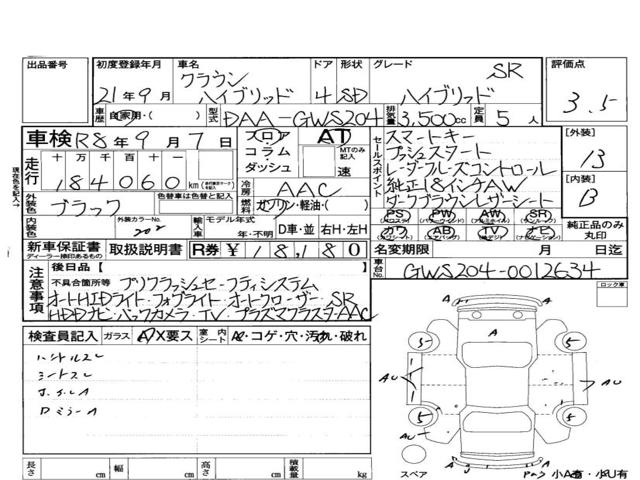 出品番号 初度登録年月 車名 ドア 形状 グレード 評価点
クラウン SR
21年9月 ハイブリッド 4 SD ハイブリッド 3.5
車歴 自家用・( ) 型式 DAA-GWS204 排気量 3,500cc 定員 5人
車検 R8年9月7日 フロア コラム ダッシュ AT MTのみ記入 速
セールスポイント
スマートキー
プッシュスタート
レーダークルーズコントロール
純正18インチAW
ダークブラウンレザーシート
[外装] 13
[内装] B
走行 十万 万 千 百 十 一
184060 km
冷房 AAC
外装色 ブラック 色替車は色替と記入 燃料 ガソリン・軽油・( )
PS PW AW SR
カワ AB TV ナビ
純正品のみ丸印
内装色 外装カラーNo. 202 輸入車 モデル年式 年・不明 D車・並 右H・左H
新車保証書 ディーラー捺印あるもの 取扱説明書 R券 ¥18,180 名変期限 月 日迄
車台No. GWS204-0012634
ロック車
注意事項 後日品【
不具合箇所等 プリクラッシュセーフティシステム
オートHIDライト・フォグライト・オートクローザー・SR
HDDナビ・バックカメラ・TV・プラズマクラスターAAC
検査員記入 ガラス A/X要ス 室内シート A・コゲ・穴・汚れ・破れ
ハンドルスレ
シートスレ
ホイルA
ロミラーA
A
5 5
AU AU
A
5 5
AU
A
スペア
小A有・小U有
長さ cm 幅 cm 高さ cm 積載量 kg